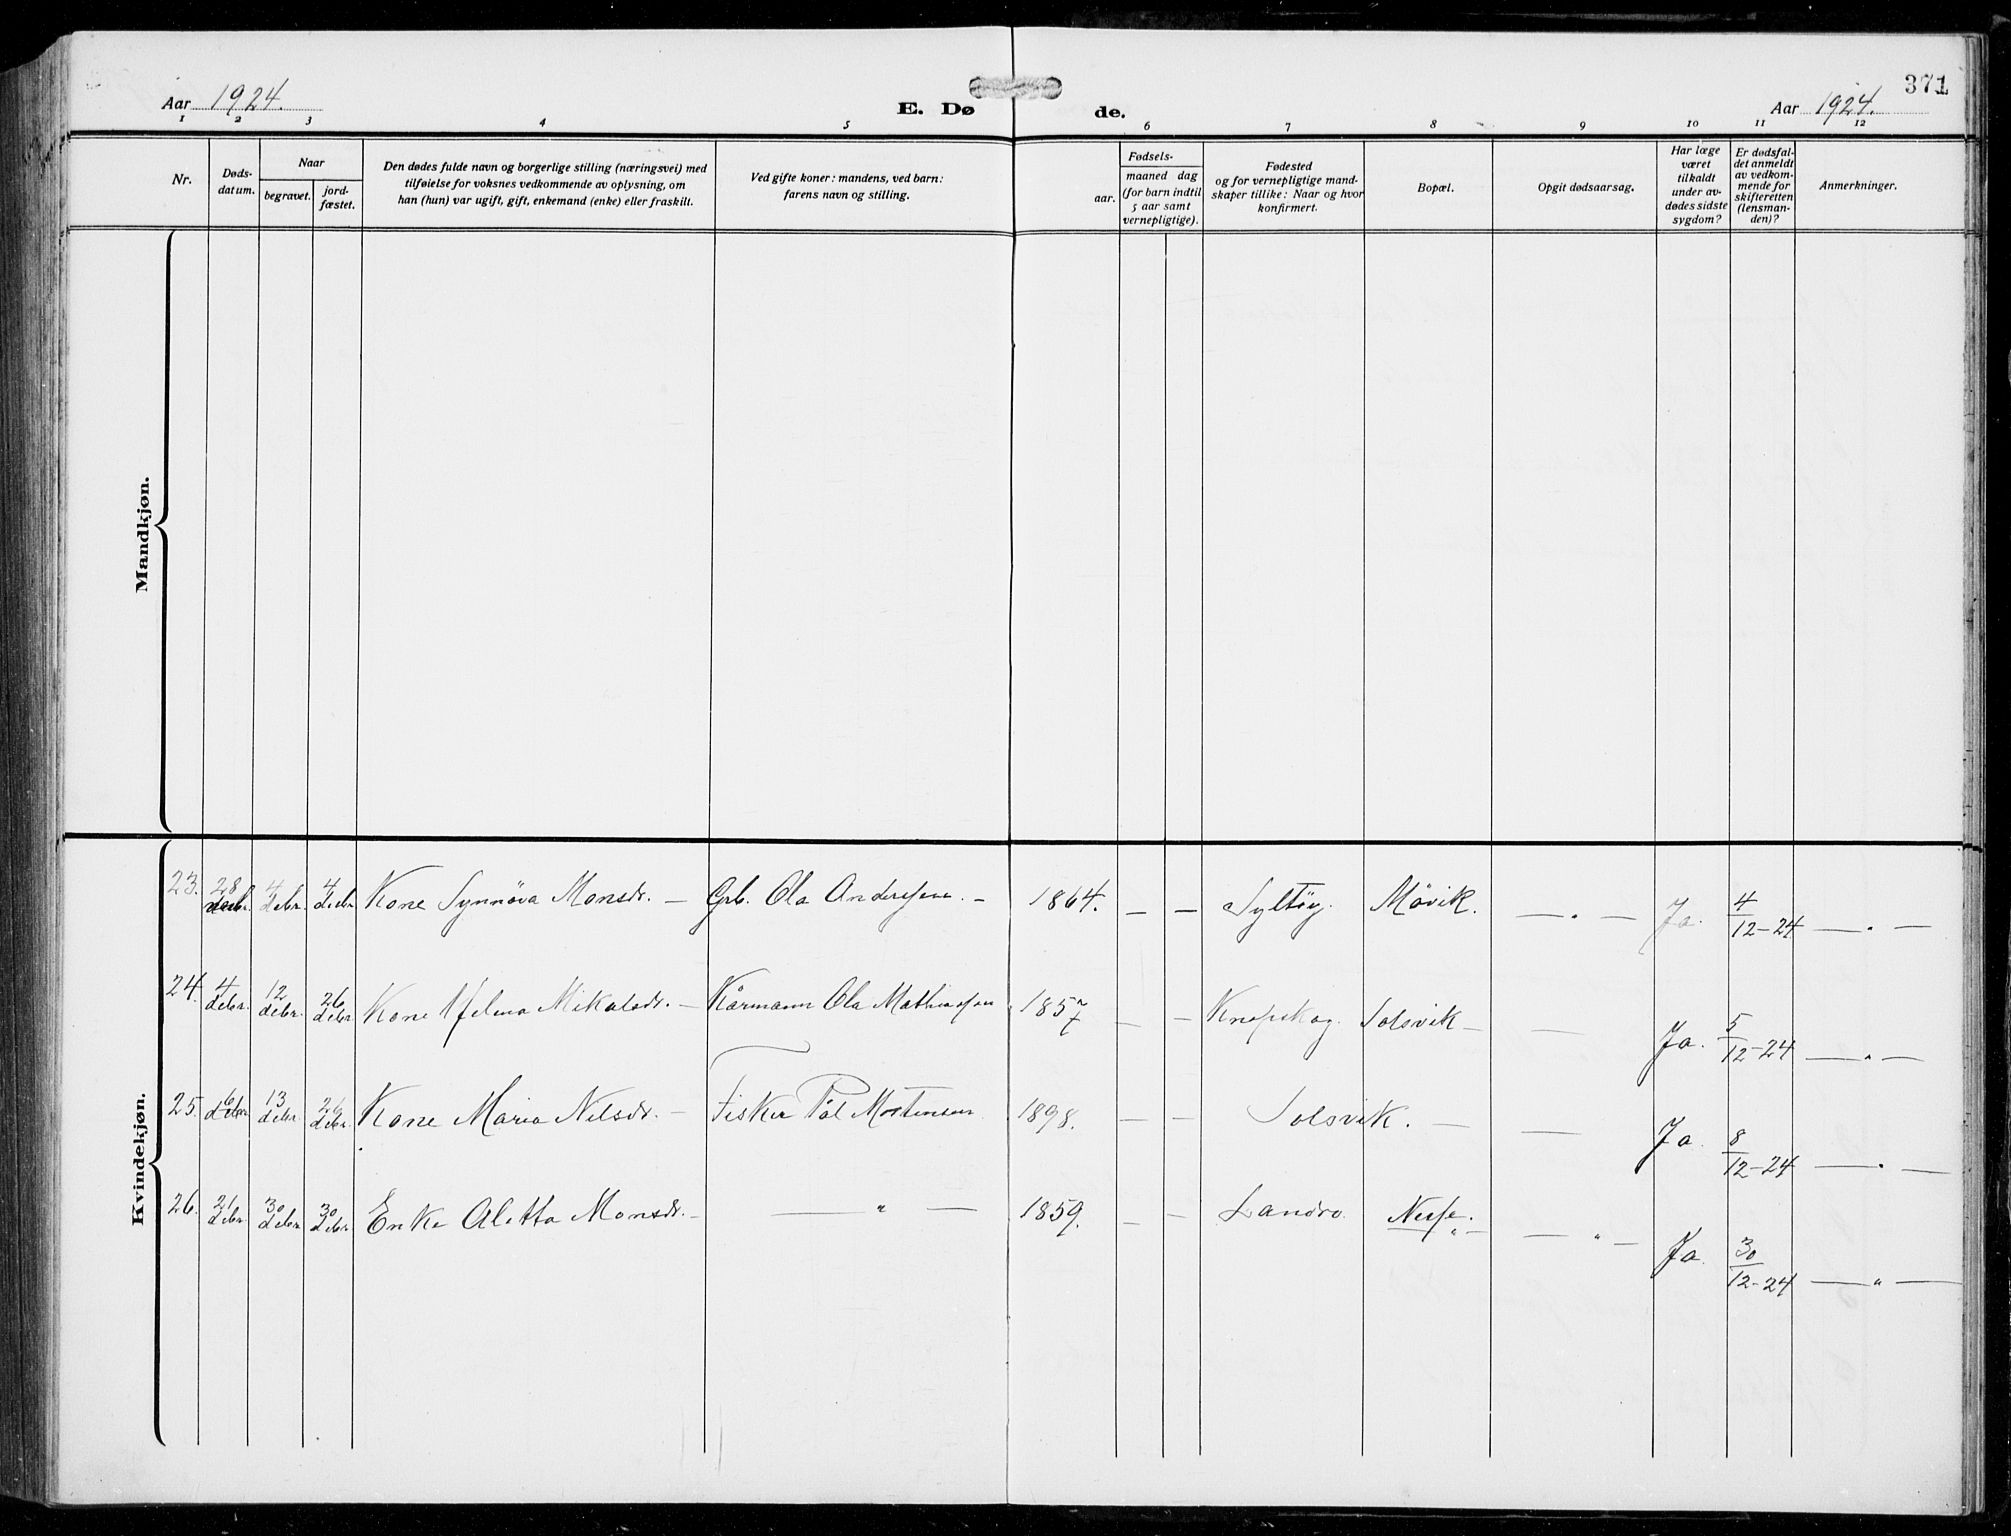 371
Aar 1924.
E. Dø
de.
Aar 1924.
1 2 3 4 5 6 7 8 9 10 11 12
Nr.
Døds-
datum.
Naar
begravet.
jord-
fæstet.
Den dødes fulde navn og borgerlige stilling (næringsvei) med
tilføielse for voksnes vedkommende av oplysning, om
han (hun) var ugift, gift, enkemand (enke) eller fraskilt.
Ved gifte koner: mandens, ved barn:
farens navn og stilling.
aar.
Fødsels-
maaned dag
(for barn indtil
5 aar samt
vernepligtige).
Fødested
og for vernepligtige mand-
skaper tillike: Naar og hvor
konfirmert.
Bopæl.
Opgit dødsaarsag.
Har læge
været
tilkaldt
under av-
dødes sidste
sygdom?
Er dødsfal-
det anmeldt
av vedkom-
mende for
skifteretten
(lensman-
den)?
Anmerkninger.
Mandkjøn.
Kvindekjøn.
23. 28 4 debr. 4 debr. Kone Synnöva Monsdr. — Grb. Ola Anderssen. — 1864. — — Syltöy. Mövik. — " — Ja. 4/12-24 — " —
24. 4 debr. 12 debr. 26 debr. Kone Mikalsdr. — Kårmann Ola Mathiassen 1857 — — Knapskog. Solsvik — — Ja. 5/12-24 — " —
25. 6 debr. 13 debr. 26 debr. Kone Maria Nilsdr. — Fisker Pål Mortensen 1898. — — Solsvik. — — Ja. 8/12-24 — " —
26. 21 debr. 30 debr. 30 debr. Enke Aletta Monsdr. — — " — 1859. — — Landro Nesse. " — — " — Ja 30/12-24 — " —